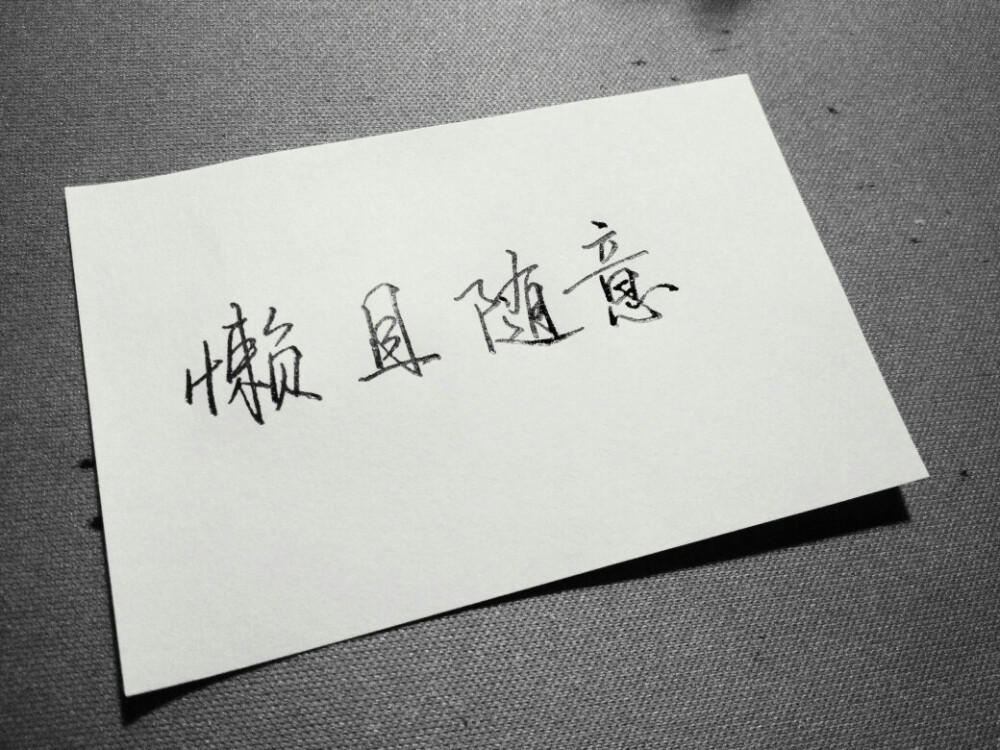 懒且随意